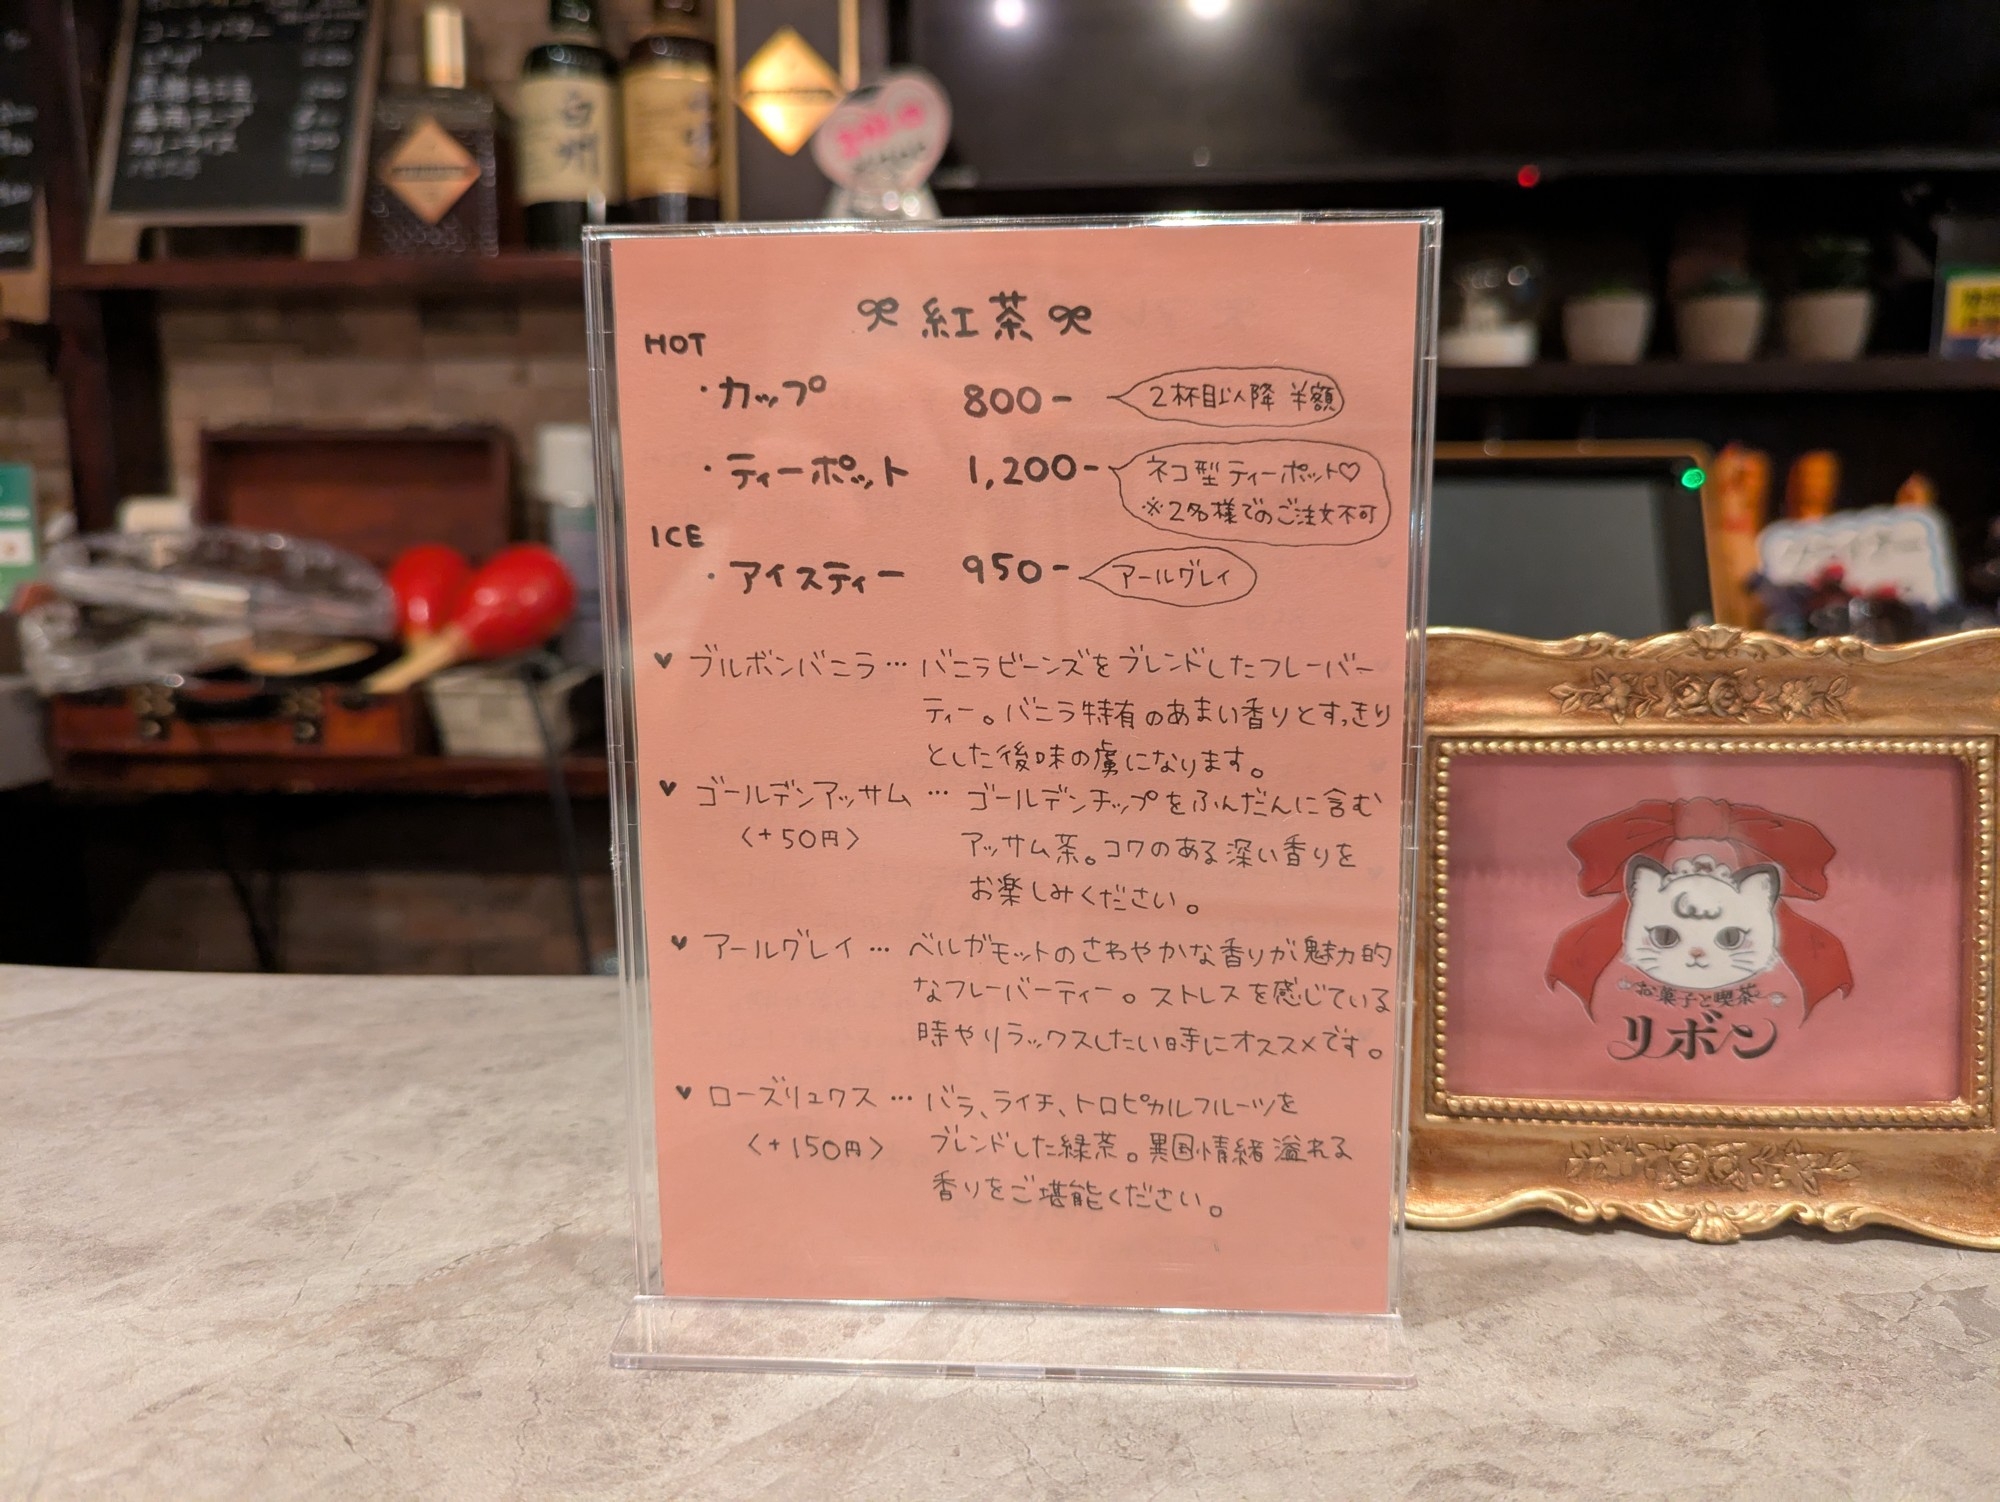 紅茶
HOT
・カップ 800- 2杯目以降 半額
・ティーポット 1,200- ネコ型ティーポット♡
※2名様でのご注文不可
ICE
・アイスティー 950- アールグレイ
♥ ブルボンバニラ… バニラビーンズをブレンドしたフレーバー
ティー。バニラ特有のあまい香りとすっきり
とした後味の虜になります。
♥ ゴールデンアッサム … ゴールデンチップをふんだんに含む
〈+50円〉 アッサム茶。コクのある深い香りを
お楽しみください。
♥ アールグレイ … ベルガモットのさわやかな香りが魅力的
なフレーバーティー。ストレスを感じている
時やリラックスしたい時にオススメです。
♥ ローズリュクス … バラ、ライチ、トロピカルフルーツを
〈+150円〉 ブレンドした緑茶。異国情緒溢れる
香りをご堪能ください。
お菓子と喫茶
リボン
白州
カレーライス